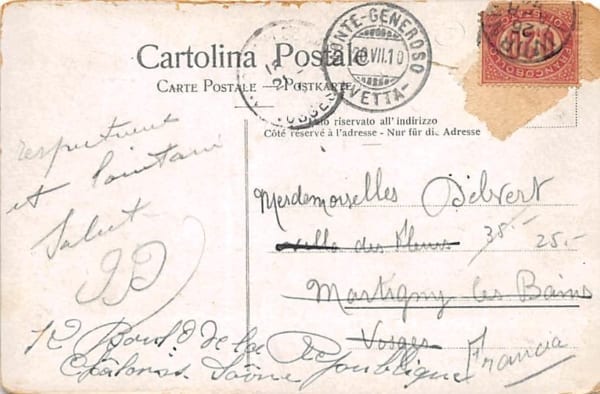 Cartolina Postale
CARTE POSTALE - POSTKARTE
MONTE-GENEROSO
20.VII.10
VETTA
Lato riservato all' indirizzo
Côté réservé à l'adresse - Nur für die Adresse
respectueux
et lointain
Salut
Mesdemoiselles Delvert
villa des Fleurs 38.- 25.-
Martigny les Bains
Vosges
Francia
12 Boul d de la République
Châlons Saône